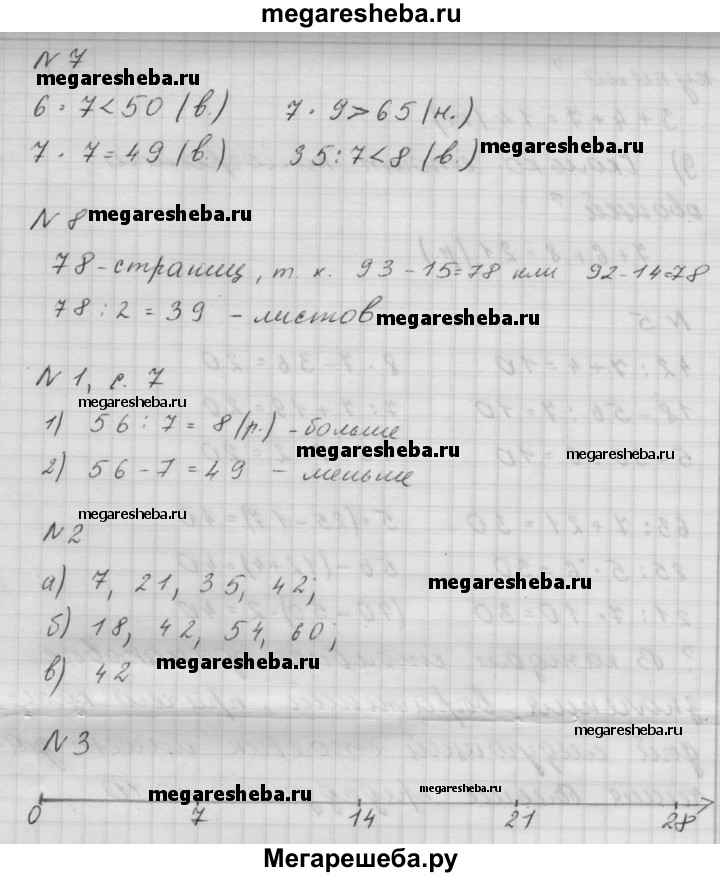 megaresheba.ru
N 7
megaresheba.ru
6 · 7 < 50 (в.) 7 · 9 > 65 (н.)
7 · 7 = 49 (в.) 35 : 7 < 8 (в.) megaresheba.ru
N 8 megaresheba.ru
78 - страниц, т. к. 93 - 15 = 78 или 92 - 14 = 78
78 : 2 = 39 - листов megaresheba.ru
N 1, с. 7
megaresheba.ru
1) 56 : 7 = 8 (р.) - больше
megaresheba.ru megaresheba.ru
2) 56 - 7 = 49 - меньше
megaresheba.ru
N 2
а) 7, 21, 35, 42; megaresheba.ru
б) 18, 42, 54, 60;
в) 42 megaresheba.ru
megaresheba.ru
N 3
megaresheba.ru megaresheba.ru
0 7 14 21 28
Мегарешеба.ру